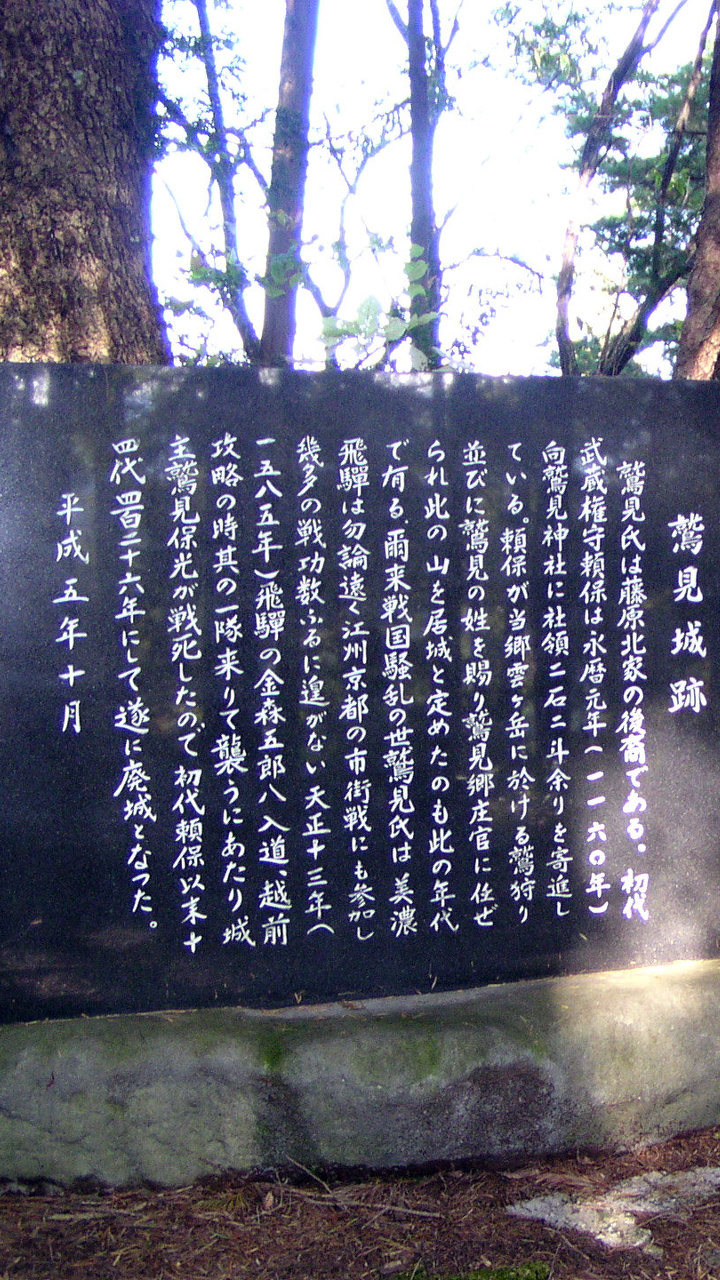 鷲見城跡
鷲見氏は藤原北家の後裔である。初代
武蔵権守頼保は永暦元年(一一六〇年)
向鷲見神社に社領二石二斗余りを寄進し
ている。頼保が当郷雲ヶ岳に於ける鷲狩り
並びに鷲見の姓を賜り鷲見郷庄官に任ぜ
られ此の山を居城と定めたのも此の年代
で有る。爾来戦国騒乱の世鷲見氏は美濃
飛驒は勿論遠く江州京都の市街戦にも参加し
幾多の戦功数ふるに遑がない天正十三年(
一五八五年)飛驒の金森五郎八入道、越前
攻略の時其の一隊来りて襲うにあたり城
主鷲見保光が戦死したので初代頼保以来十
四代四百二十六年にして遂に廃城となった。
平成五年十月